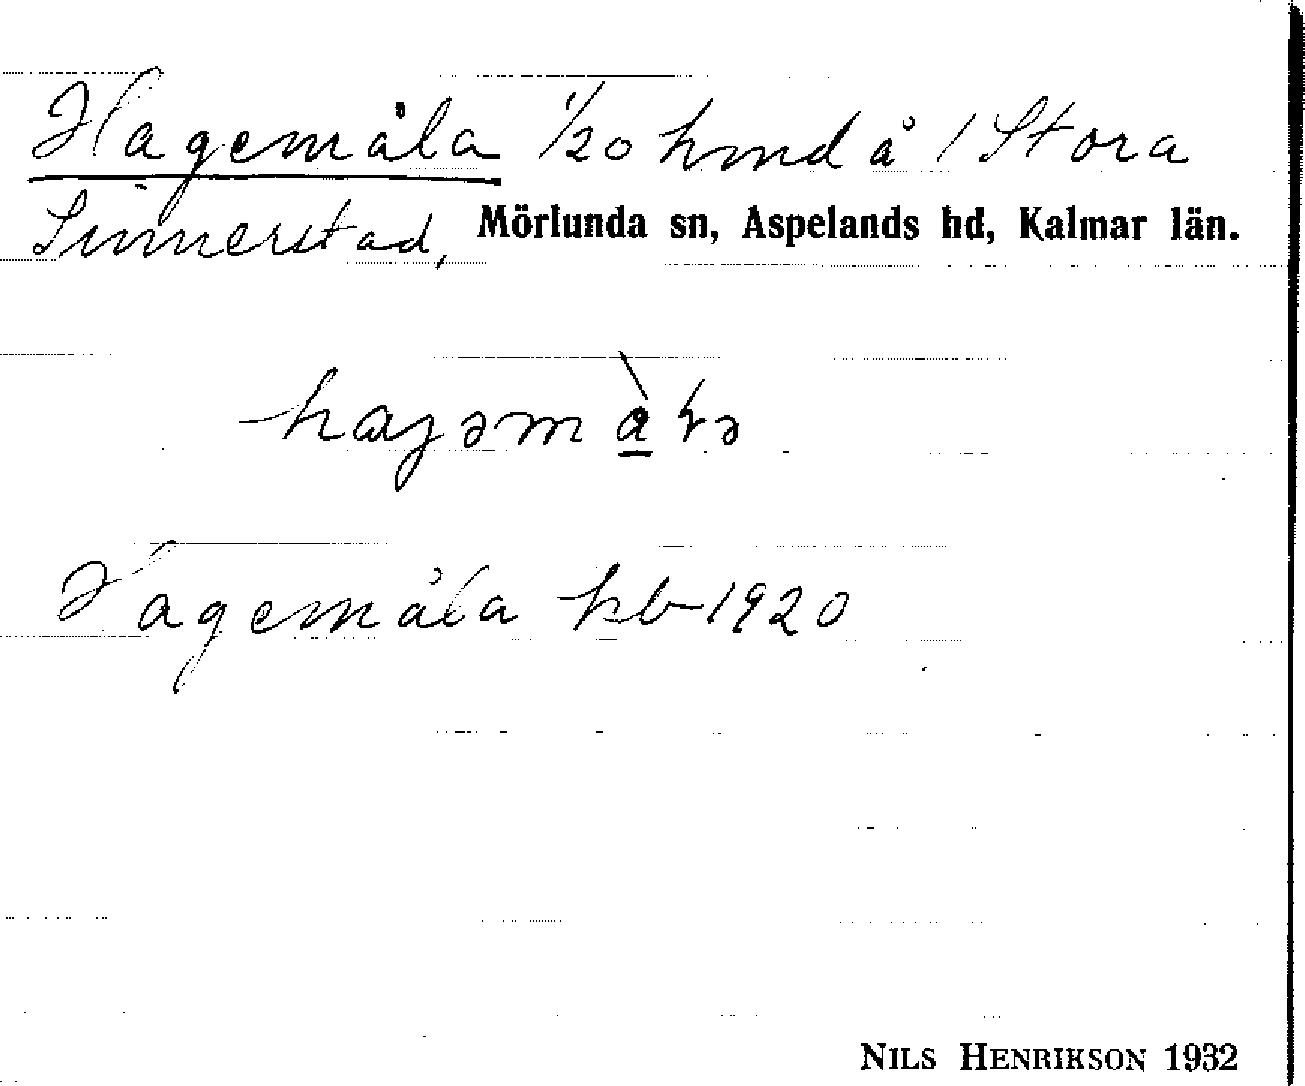 Hagemåla 1/20 hmd å 1 Stora
Sinnerstad, Mörlunda sn, Aspelands hd, Kalmar län.
Hagemåla kb 1920
NILS HENRIKSON 1932